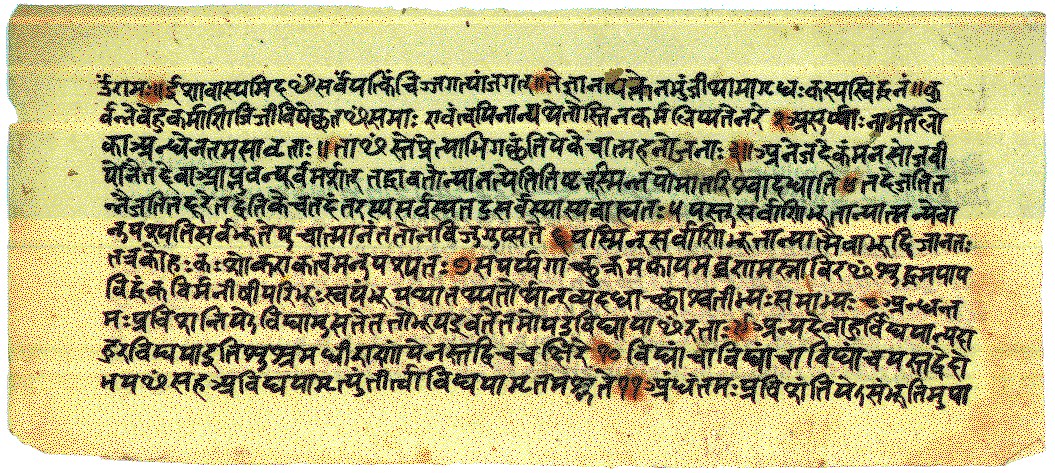 ॐराम॥ ईशावास्यमिदꣳसर्वंयत्किंचिज्जगत्यांजगत् तेनत्यक्तेनभुंजीथामागृधःकस्यस्विद्धनं॥ कु
र्वन्नेवेहकर्माणिजिजीविषेछतꣳसमाः एवंत्वयिनान्यथेतोस्तिनकर्मलिप्यतेनरे २ असुर्य्याःनामतेलो
काअन्धेनतमसावृताः॥ ताꣳस्तेप्रेत्याभिगछंतियेकेचात्महनोजनाः ३॥ अनेजदेकंमनसोजवी
योनैनद्देवाआप्नुवन्पूर्वमर्शत् तद्धावतोन्यानत्येतितिष्टत्तस्मिन्नपोमातरिश्वादधाति ४ तदेजतित
न्नैजतितद्दूरेतद्वंतिकेचतदंतरस्यसर्वस्यतदुसर्वस्यास्यबाह्यतः ५ यस्तुसर्वाणिभूतान्यात्मन्येवा
नुपश्यतिसर्वभूतेषुचात्मानंततोनविजुगुप्सते ६ यस्मिन्सर्वाणिभूतान्यात्मैवाभूद्विजानतः
तत्रकोमोहःकःशोकएकत्वमनुपश्यतः ७ सपर्य्यगाच्छुक्रमकायमव्रणमस्नाविरꣳशुद्धमपाप
विद्धंकविर्मनीषीपरिभूःस्वयंभूर्याथातथ्यतोर्थान्व्यदधाच्छाश्वतीभ्यःसमाभ्यः ८ अन्धन्त
मःप्रविशन्तियेऽविद्यामुपासतेततोभूयइवतेतमोयउविद्यायाꣳरताः ९ अन्यदेवाहुर्विद्ययान्यदा
हुरविद्ययाइतिशुश्रुमधीराणांयेनस्तद्विचचक्षिरे १० विद्यांचाविद्यांचाविद्याचयस्तद्वेदो
भयꣳसहअविद्ययामृत्युंतीर्त्वाविद्ययामृतमश्नुते ११ अंधंतमःप्रविशंतियेऽसंभूतिमुपा